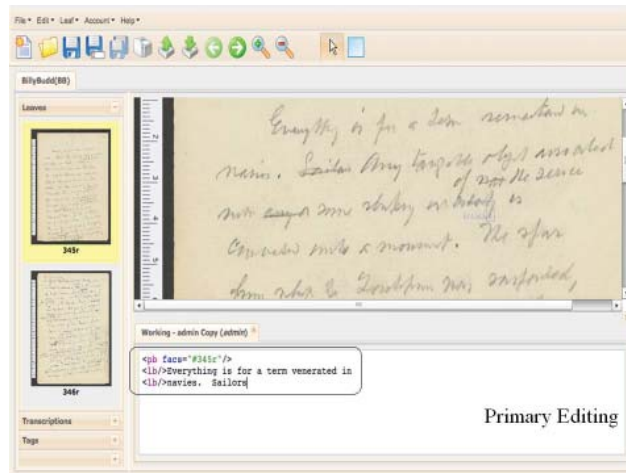 File Edit Leaf Account Help
BillyBudd(BB)
Leaves
345r
346r
Transcriptions
Tags
Everything is for a term remarked in
navies. Any tangible object associated
of the service
with some striking incident is
converted into a monument. The spar
from which the Foretopman was suspended,
Working - admin Copy (admin)
<pb facs="#345r"/>
<lb/>Everything is for a term venerated in
<lb/>navies. Sailors
Primary Editing